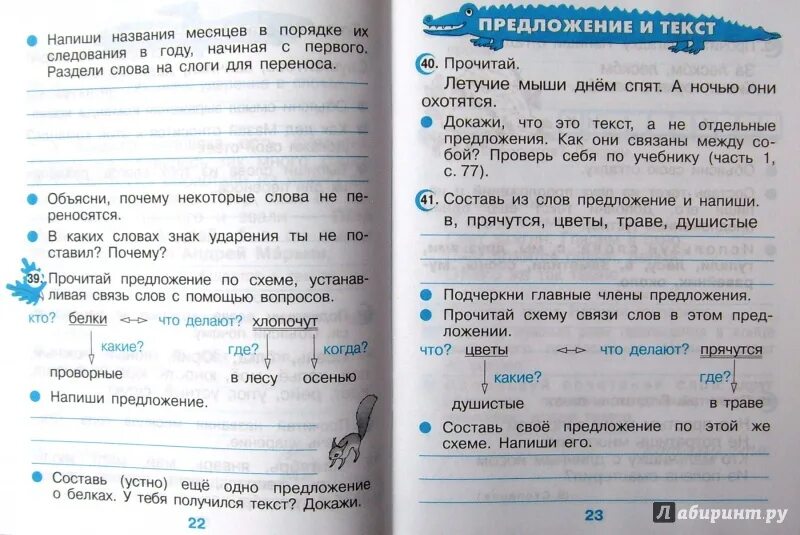 Напиши названия месяцев в порядке их
следования в году, начиная с первого.
Раздели слова на слоги для переноса.
Объясни, почему некоторые слова не пе-
реносятся.
В каких словах знак ударения ты не по-
ставил? Почему?
39. Прочитай предложение по схеме, устанав-
ливая связь слов с помощью вопросов.
кто? белки что делают? хлопочут
какие? где? когда?
проворные в лесу осенью
Напиши предложение.
Составь (устно) ещё одно предложение
о белках. У тебя получился текст? Докажи.
22
ПРЕДЛОЖЕНИЕ И ТЕКСТ
40. Прочитай.
Летучие мыши днём спят. А ночью они
охотятся.
Докажи, что это текст, а не отдельные
предложения. Как они связаны между со-
бой? Проверь себя по учебнику (часть 1,
с. 77).
41. Составь из слов предложение и напиши.
в, прячутся, цветы, траве, душистые
Подчеркни главные члены предложения.
Прочитай схему связи слов в этом пред-
ложении.
что? цветы что делают? прячутся
какие? где?
душистые в траве
Составь своё предложение по этой же
схеме. Напиши его.
23
Лабиринт.ру